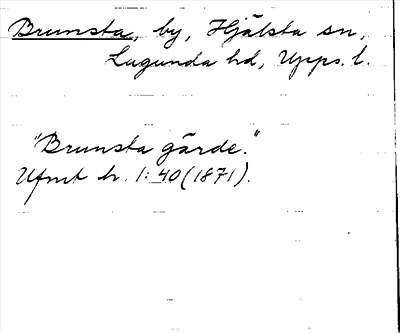 Brunsta, by, Hjälsta sn,
Lagunda hd, Upps. l.
"Brunsta gärde."
Ufmt h. 1:40 (1871).